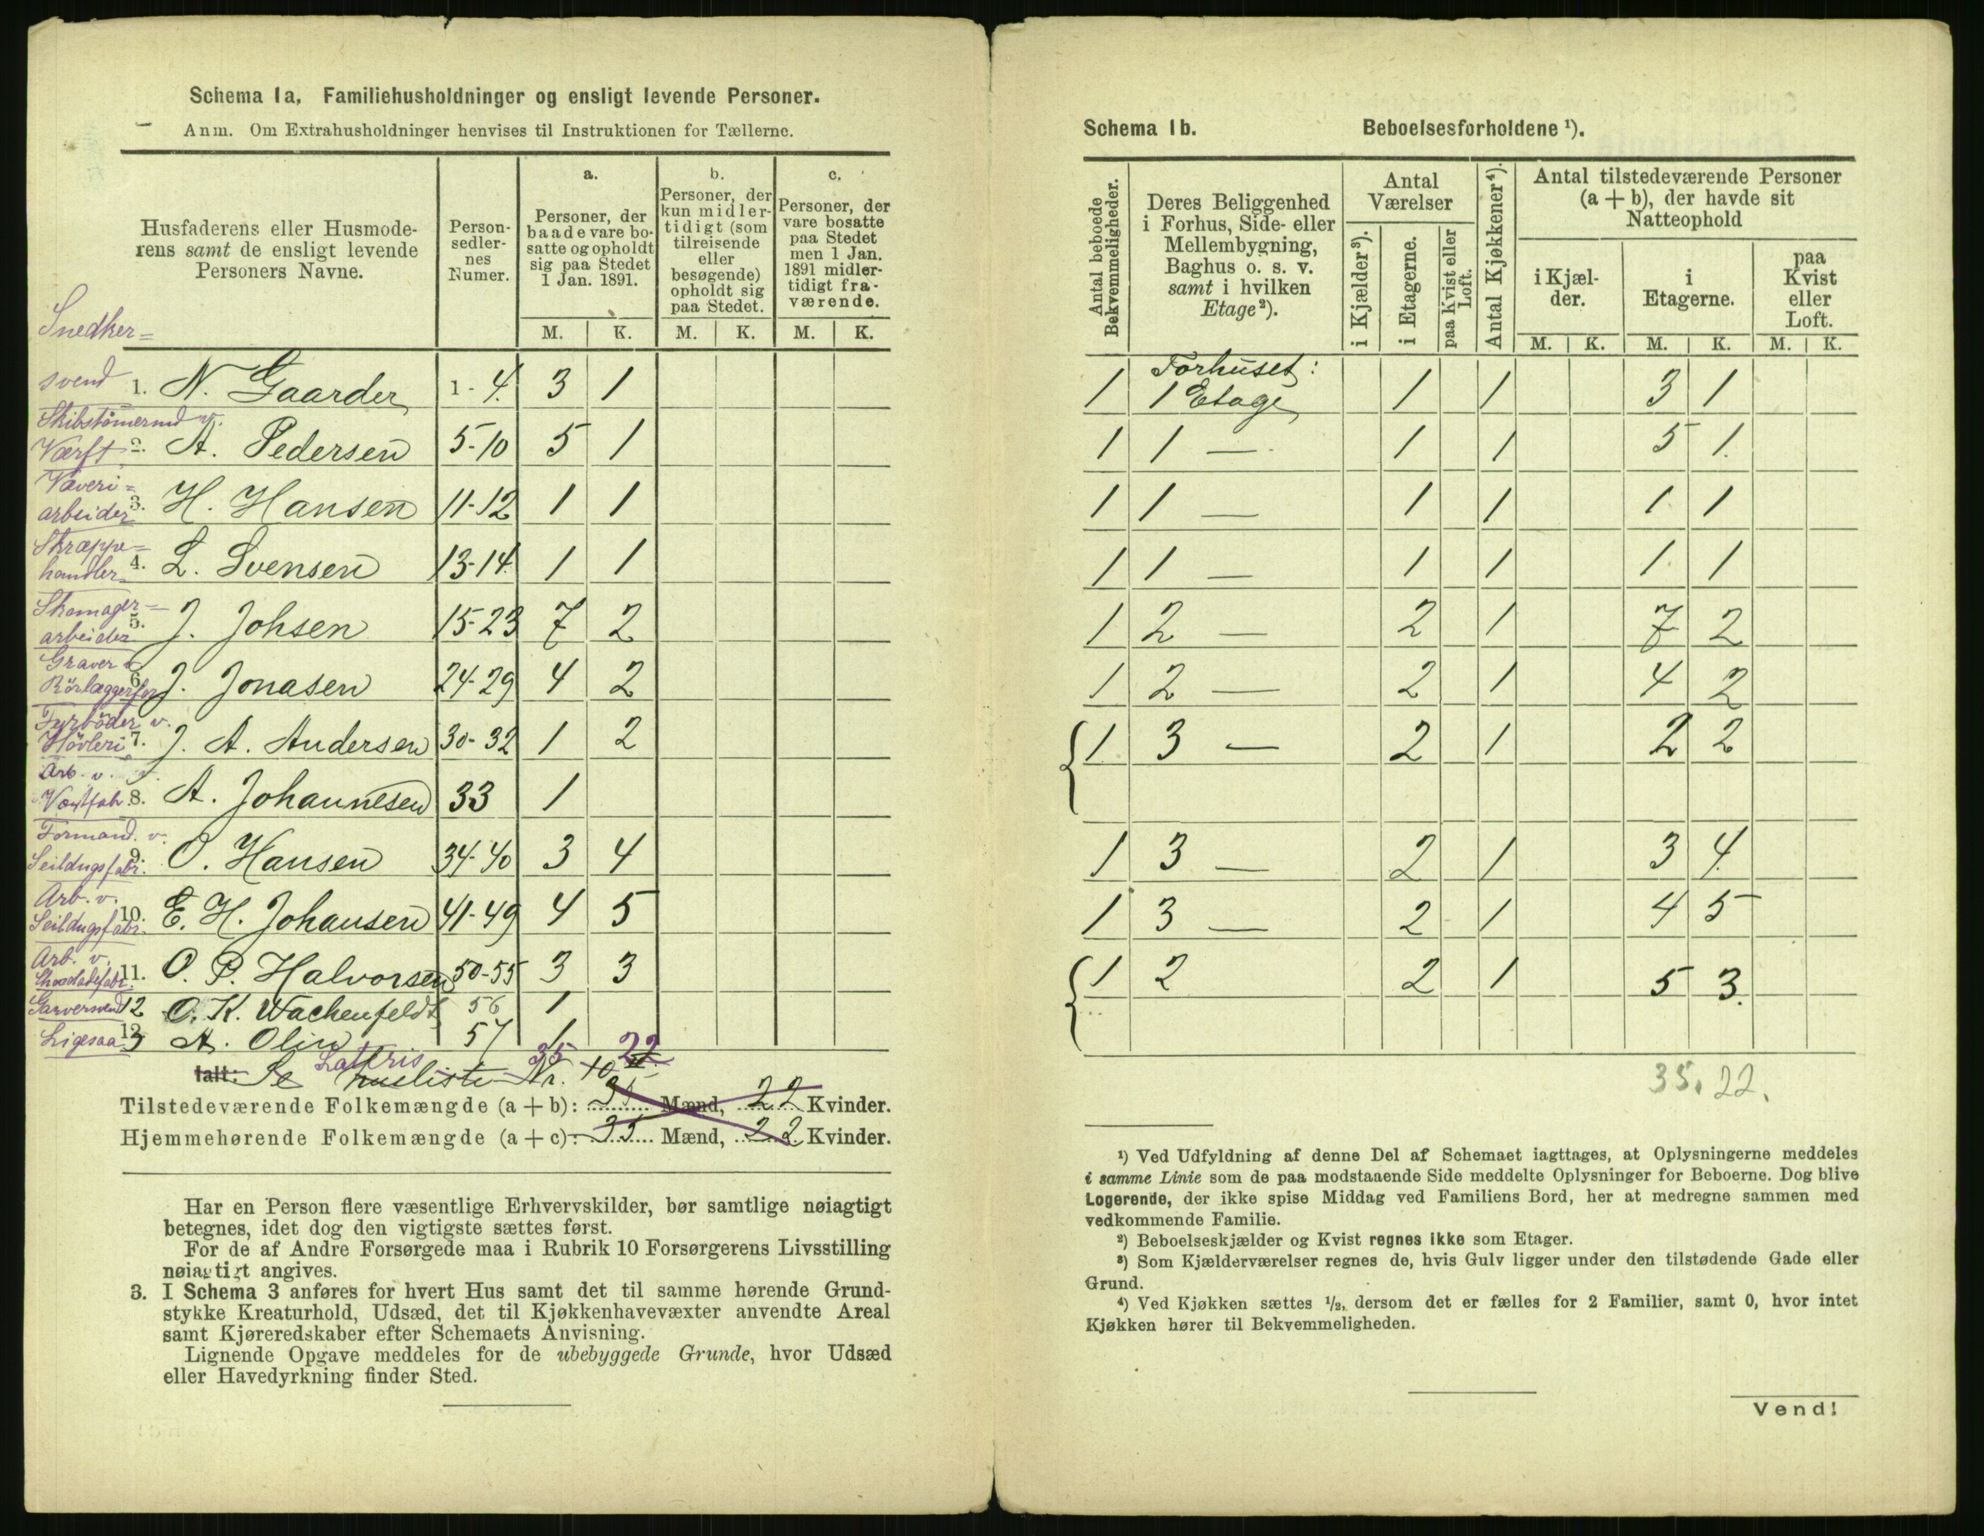 Schema 1a. Familiehusholdninger og ensligt levende Personer.
Anm. Om Extrahusholdninger henvises til Instruktionen for Tællerne.
Husfaderens eller Husmode-
rens samt de ensligt levende
Personers Navne.
Person-
sedler-
nes
Numer.
a.
Personer, der
baade vare bo-
satte og opholdt
sig paa Stedet
1 Jan. 1891.
b.
Personer, der
kun midler-
tidigt (som
tilreisende
eller
besøgende)
opholdt sig
paa Stedet.
c.
Personer, der
vare bosatte
paa Stedet
men 1 Jan.
1891 midler-
tidigt fra-
værende.
M. K. M. K. M. K.
Snedker=
svend 1. N. Gaarder 1-4. 3 1
Skibstömermd v.
Værft 2. A. Pedersen 5-10 5 1
Væveri=
arbeider 3. H. Hansen 11-12 1 1
Skræppe=
handler 4. L. Svensen 13-14. 1 1
Skomager=
arbeider 5. J. Johsen 15-23 7 2
Graver
Rörlægger 6. J. Jonasen 24-29 4 2
Fyrböder v.
Hövleri 7. J. A. Andersen 30-32 1 2
Arb. v.
8. A. Johannesen 33 1
Formand v.
Seildugsfabr. 9. O. Hansen 34-40 3 4
Arb. v.
Seildugsfabr. 10. E. H. Johansen 41-49 4 5
Arb. v.
11. O. P. Halvorsen 50-55 3 3
Garversvend 12 O. K. Wachenfeldt 56 1
Ligesaa 13 A. Olin 57 1
35 22
Ialt: Se Nr. 10
Tilstedeværende Folkemængde (a + b): 35 Mænd, 22 Kvinder.
Hjemmehørende Folkemængde (a + c): 35 Mænd, 22 Kvinder.
Har en Person flere væsentlige Erhvervskilder, bør samtlige nøiagtigt
betegnes, idet dog den vigtigste sættes først.
For de af Andre Forsørgede maa i Rubrik 10 Forsørgerens Livsstilling
nøiagtigt angives.
3. I Schema 3 anføres for hvert Hus samt det til samme hørende Grund-
stykke Kreaturhold, Udsæd, det til Kjøkkenhavevæxter anvendte Areal
samt Kjøreredskaber efter Schemaets Anvisning.
Lignende Opgave meddeles for de ubebyggede Grunde, hvor Udsæd
eller Havedyrkning finder Sted.
Schema 1b. Beboelsesforholdene ¹).
Antal beboede
Bekvemmeligheder.
Deres Beliggenhed
i Forhus, Side- eller
Mellembygning,
Baghus o. s. v.
samt i hvilken
Etage²).
Antal
Værelser
i Kjælder³).
i Etagerne.
paa Kvist eller
Loft.
Antal Kjøkkener⁴).
Antal tilstedeværende Personer
(a + b), der havde sit
Natteophold
i Kjæl-
der.
i
Etagerne.
paa
Kvist
eller
Loft.
M. K. M. K. M. K.
Forhuset:
1 1 Etage 1 1 3 1
1 1 — 1 1 5 1
1 1 — 1 1 1 1
1 1 — 1 1 1 1
1 2 — 2 1 7 2
1 2 — 2 1 4 2
1 3 — 2 1 2 2
1 3 — 2 1 3 4
1 3 — 2 1 4 5
1 2 2 1 5 3
35. 22.
¹) Ved Udfyldning af denne Del af Schemaet iagttages, at Oplysningerne meddeles
i samme Linie som de paa modstaaende Side meddelte Oplysninger for Beboerne. Dog blive
Logerende, der ikke spise Middag ved Familiens Bord, her at medregne sammen med
vedkommende Familie.
²) Beboelseskjælder og Kvist regnes ikke som Etager.
³) Som Kjælderværelser regnes de, hvis Gulv ligger under den tilstødende Gade eller
Grund.
⁴) Ved Kjøkken sættes ½, dersom det er fælles for 2 Familier, samt 0, hvor intet
Kjøkken hører til Bekvemmeligheden.
Vend!